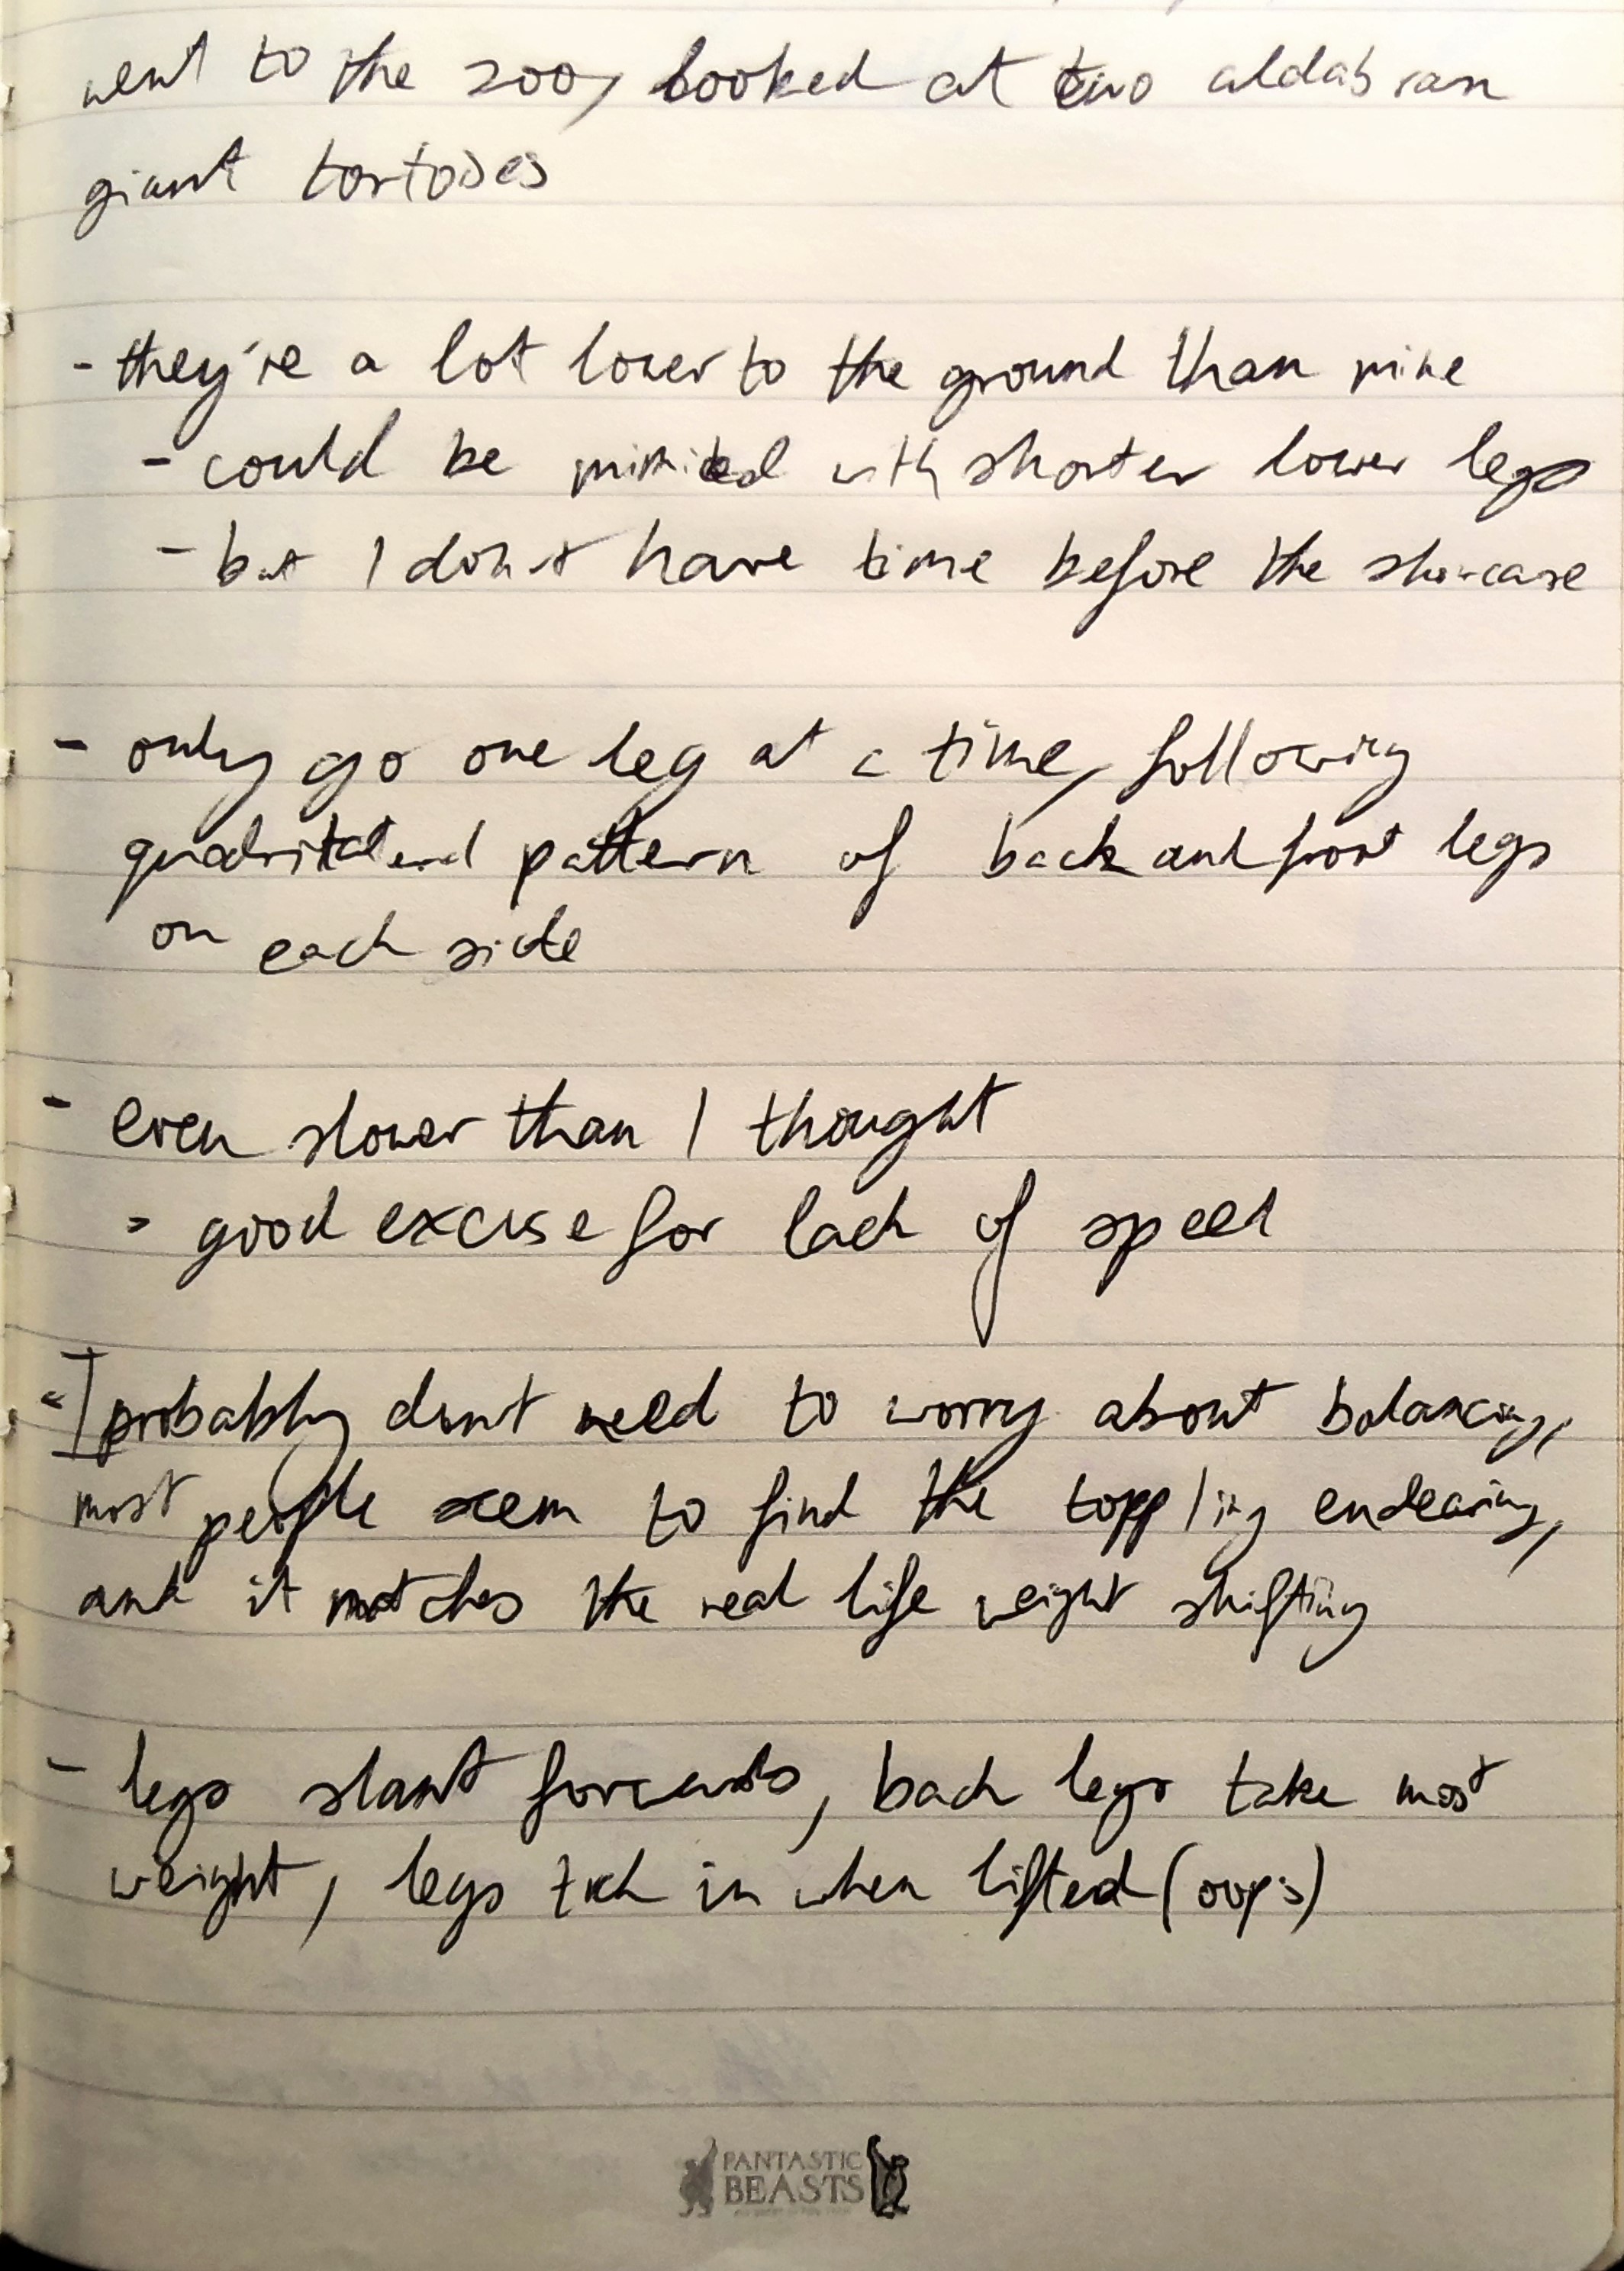 went to the zoo, looked at two aldabran
giant tortoises
- they're a lot lower to the ground than mine
- could be mimicked with shorter lower legs
- but I don't have time before the showcase
- only go one leg at a time, following
pattern of back and front legs
on each side
- even slower than I thought
- good excuse for lack of speed
- I probably don't need to worry about balancing,
most people seem to find the toppling endearing,
and it matches the real life weight shifting
- legs slant forwards, back legs take most
weight, legs tuck in when lifted (oops)
FANTASTIC
BEASTS